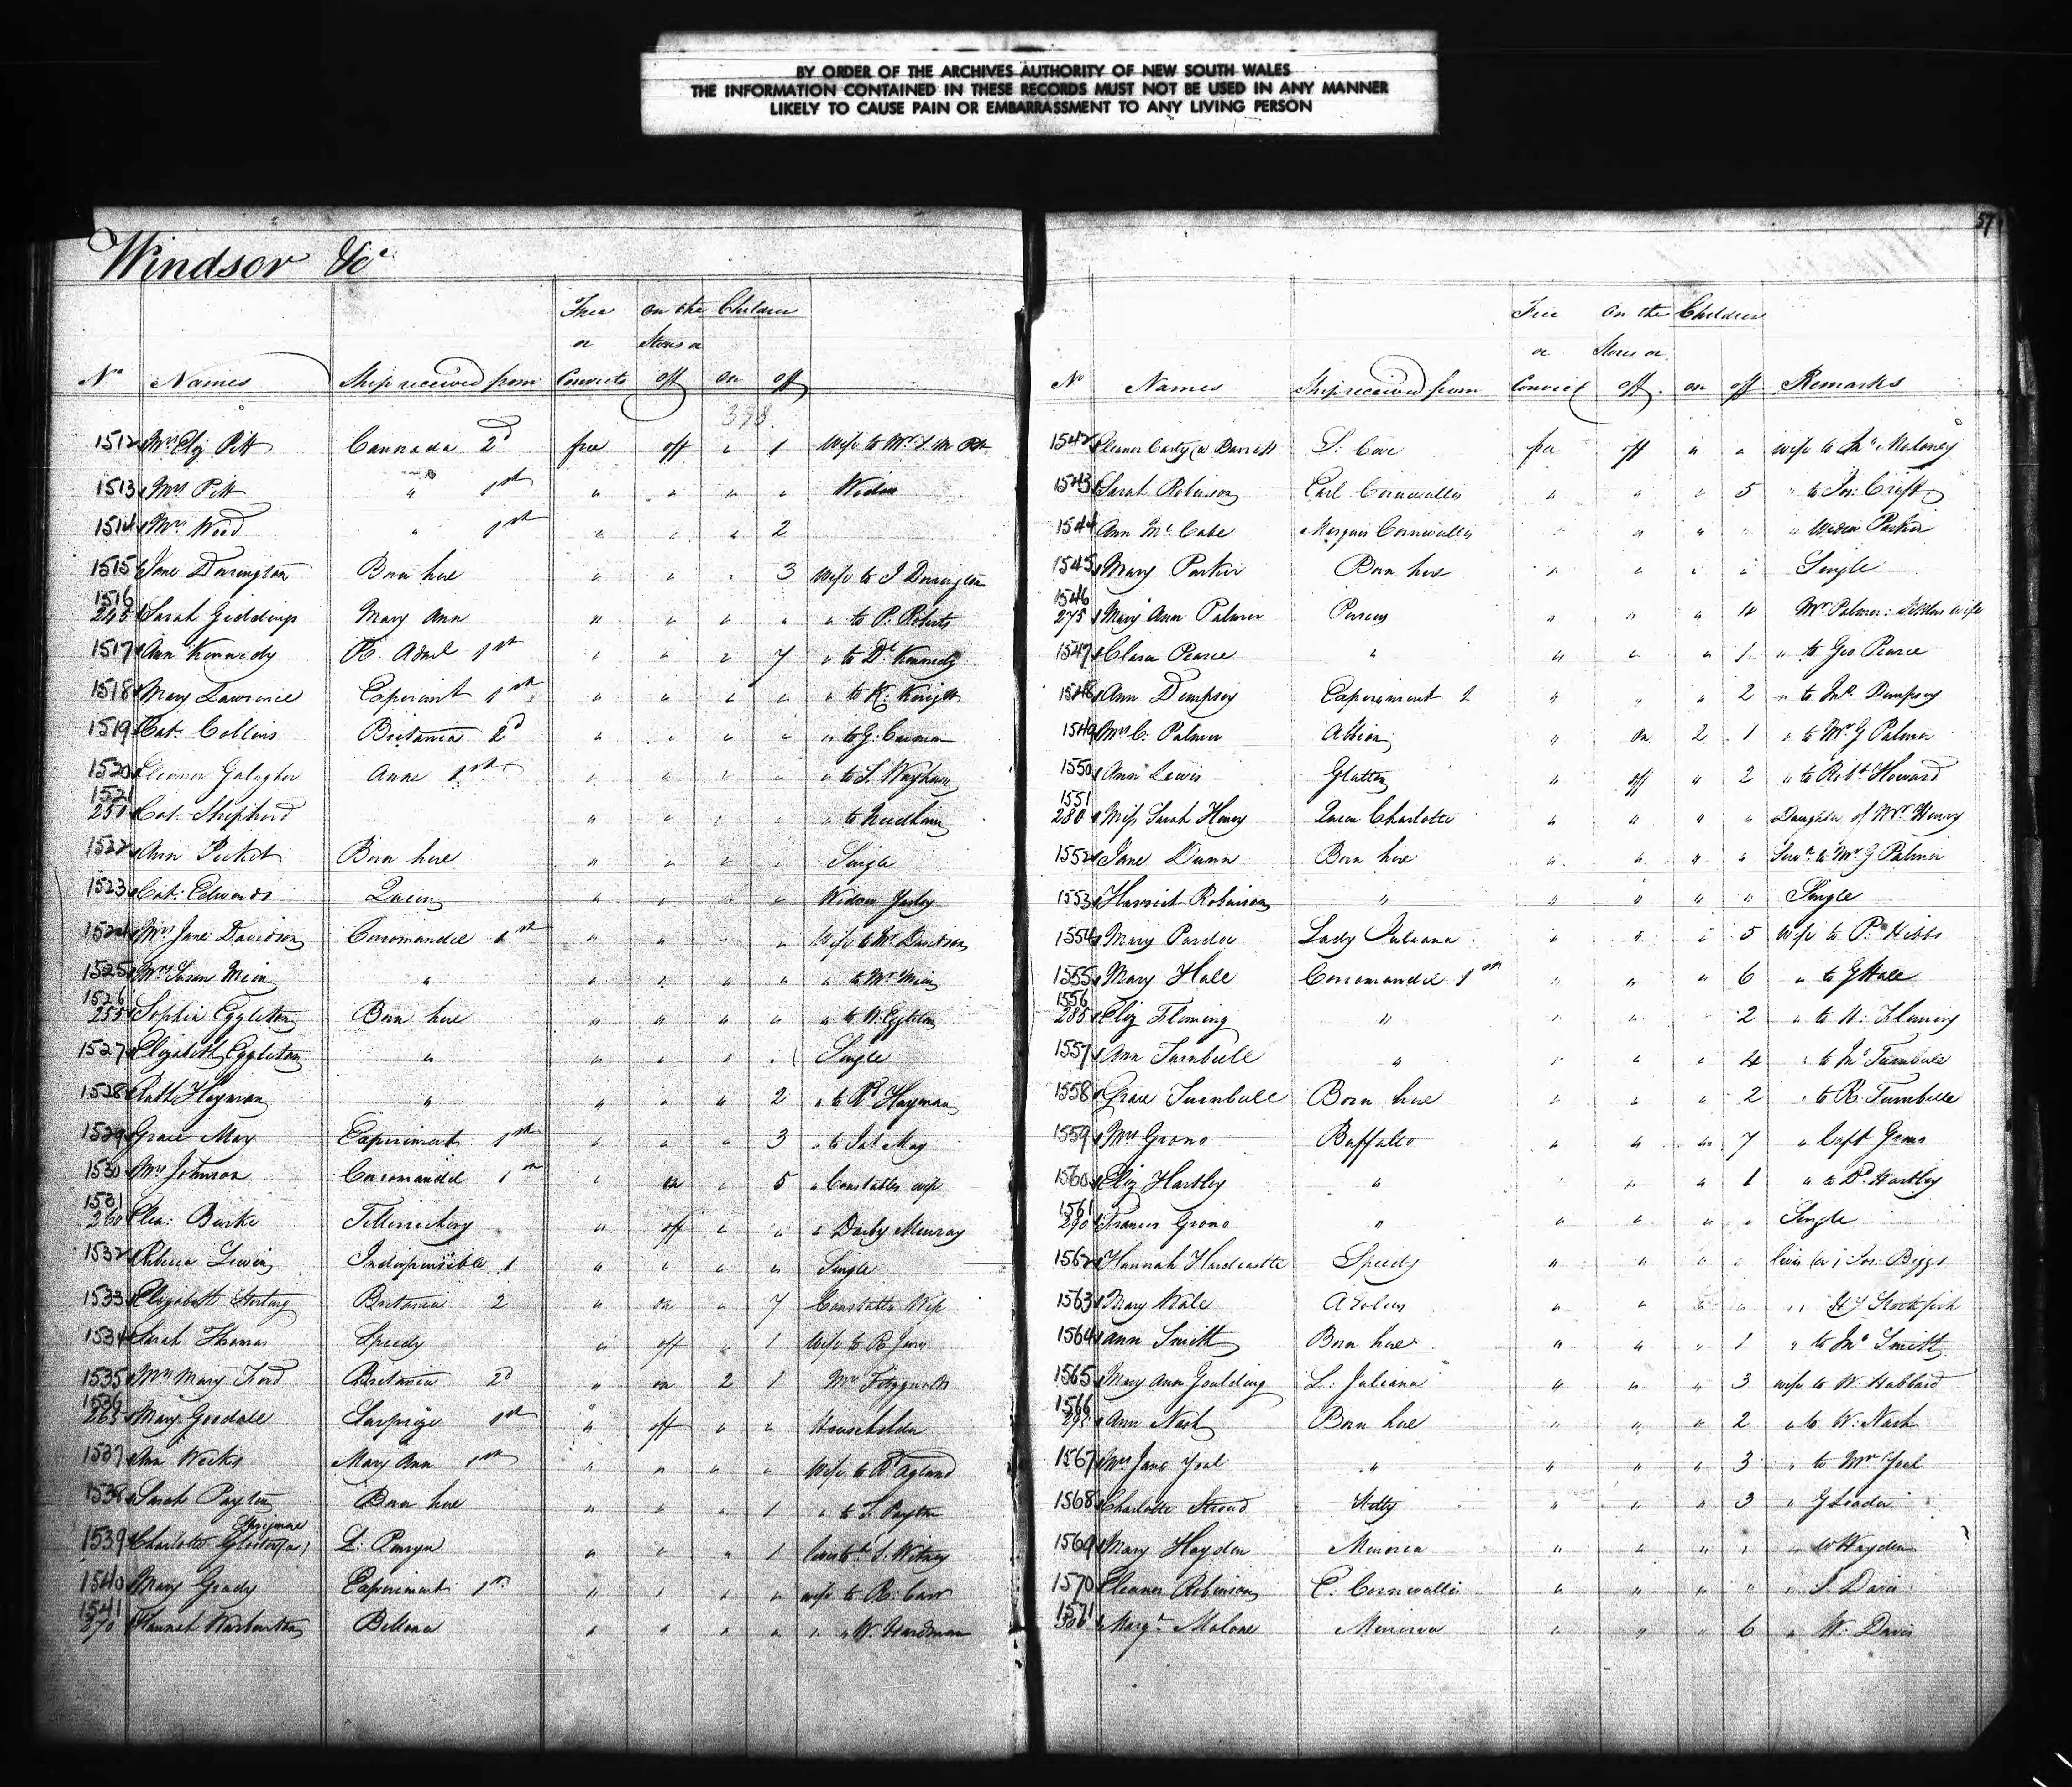 BY ORDER OF THE ARCHIVES AUTHORITY OF NEW SOUTH WALES
THE INFORMATION CONTAINED IN THESE RECORDS MUST NOT BE USED IN ANY MANNER
LIKELY TO CAUSE PAIN OR EMBARRASSMENT TO ANY LIVING PERSON
57
Windsor &c
Free on the Children
or Stores or
No Names Ship received from Convicts off on off
398
1512 Mrs Eliz Pitt Cannada 2d free off " 1 Wife to Mr T. M. Pitt
1513 Mrs Pitt " 1st " " " " Widow
1514 Mrs Wood " 1st " " " 2
1515 Jane Durington Born here " " " 3 Wife to J Durington
1516
245 Sarah Giddings Mary Ann " " " " " to P. Roberts
1517 Ann Kennedy R. Adml 1st " " " 7 " to Dl Kennedy
1518 Mary Lawrence Experient 1st " " " " " to R. Knight
1519 Cat. Collins Britania 2d " " " " " to G. Carman
1520 Eleanor Galagher Anne 1st " " " " " to
1521
251 Cat. Shepherd " " " " " to Needham
1522 Ann Picket Born here " " " " Single
1523 Cat. Edwards Queen " " " " Widow Yarley
1524 Mrs Jane Davidson Corromandel 1st " " " " Wife to Mr Davidson
1525 Mrs Susan Mein " " " " " " to Mr Mein
1526
255 Sophia Eggleton Born here " " " " " to W. Eggleton
1527 Elizabeth Eggleton " " " " " Single
1528 Ruth Hayman " " " " 2 " to Rd Hayman
1529 Grace May Experiment 1st " " " 3 " to Jas May
1530 Mrs Johnson Coromandel 1st " on " 5 " Constables wife
1531
260 Elea: Burke Tellicherry " off " " " Darby Murray
1532 Rebecca Lewin Indispensible 1 " " " " Single
1533 Elizabeth Sterling Britania 2 " on " 7 Constables Wife
1534 Sarah Thomas Speedy " off " 1 Wife to R Jones
1535 Mrs Mary Ford Britania 2d " on 2 1 Mr Fitzgerald's
1536
265 Mary Goodale 1st " off " " Householder
1537 Ann Weeks Mary Ann 1st " " " " Wife to Rd Agland
1538 Sarah Payten Born here " " " 1 " to I. Payten
1539 Charlotte Gloster (a) L. Penryn " " " 1 lives to
1540 Mary Grady Experiment 1st " " " " wife to R. Carr
1541
270 Hannah Warburton Bellona " " " " " " W. Hardman
Free on the Children
or Stores or
No Names Ship received from Convict off on off Remarks
1542 Eleanor Carty (a) Barrett S. Cove free off " " wife to Jno Maloney
1543 Sarah Robinson Earl Cornwallis " " " 5 " to Jos: Craft
1544 Ann McCabe Marquis Cornwallis " " " " " Widow Parker
1545 Mary Parker Born here " " " " Single
1546
275 Mary Ann Palmer Perseus " " " 10 Mr Palmer: Settlers wife
1547 Clara Pearce " " " " 1 " to Geo Pearce
1548 Ann Dempsey Experiment 2 " " " 2 " to Jno. Dempsey
1549 Mrs C. Palmer Albion " on 2 1 " to Mr J Palmer
1550 Ann Lewis Glatton " off " 2 " to Robt Howard
1551
280 Miss Sarah Henry Queen Charlotte " " " " Daughter of Mr Henry
1552 Jane Dunn Born here " " " " Servt to Mr J Palmer
1553 Harriet Robinson " " " " " Single
1554 Mary Pardoe Lady Juliana " " " 5 Wife to P. Hibbs
1555 Mary Hall Corromandel 1st " " " 6 " to G Hall
1556
285 Eliz Fleming " " " 2 " to H. Fleming
1557 Ann Turnbull " " " " 4 " to Jno Turnbull
1558 Grace Turnbull Born here " " " 2 " to R. Turnbull
1559 Mrs Grono Buffallo " " " 7 " Capt Grono
1560 Eliz Hartley " " " " 1 " to D. Hartley
1561
290 Frances Grono " " " " " Single
1562 Hannah Hardcastle Speedy " " " " lives (a) Jos: Biggs
1563 Mary Wale Aeolus " " " " " H J Stockfish
1564 Ann Smith Born here " " " 1 " to Jno Smith
1565 Mary Ann Goulding L. Juliana " " " 3 wife to W. Hubbard
1566
295 Ann Nash Born here " " " 2 " to W. Nash
1567 Mrs Jane Yoel " " " " 3 " to Mr Yoel
1568 Charlotte Stroud Kitty " " " 3 " J Leader
1569 Mary Hayden Minerva " " " " " W Hayden
1570 Eleanor Robinson E. Cornwallis " " " " " J Davis
1571
300 Margt Malone Minerva " " " 6 " W. Davis